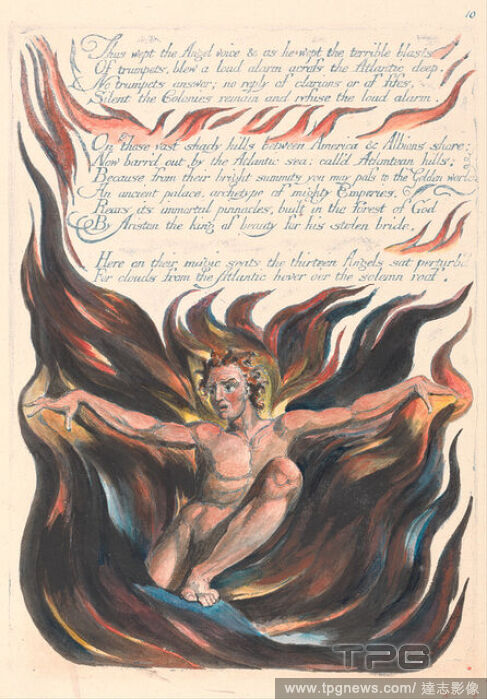 10
Thus wept the Angel voice & as he wept the terrible blasts
Of trumpets, blew a loud alarm across the Atlantic deep.
No trumpets answer; no reply of clarions or of fifes,
Silent the Colonies remain and refuse the loud alarm.
On those vast shady hills between America & Albions shore;
Now barr'd out by the Atlantic sea: call'd Atlantean hills;
Because from their bright summits you may pass to the Golden world
An ancient palace, archetype of mighty Emperies,
Rears its immortal pinnacles, built in the forest of God
By Ariston the king of beauty for his stolen bride,
Here on their magic seats the thirteen Angels sat perturb'd
For clouds from the Atlantic hover o'er the solemn roof.
TPG
www.tpgnews.com/ 達志影像